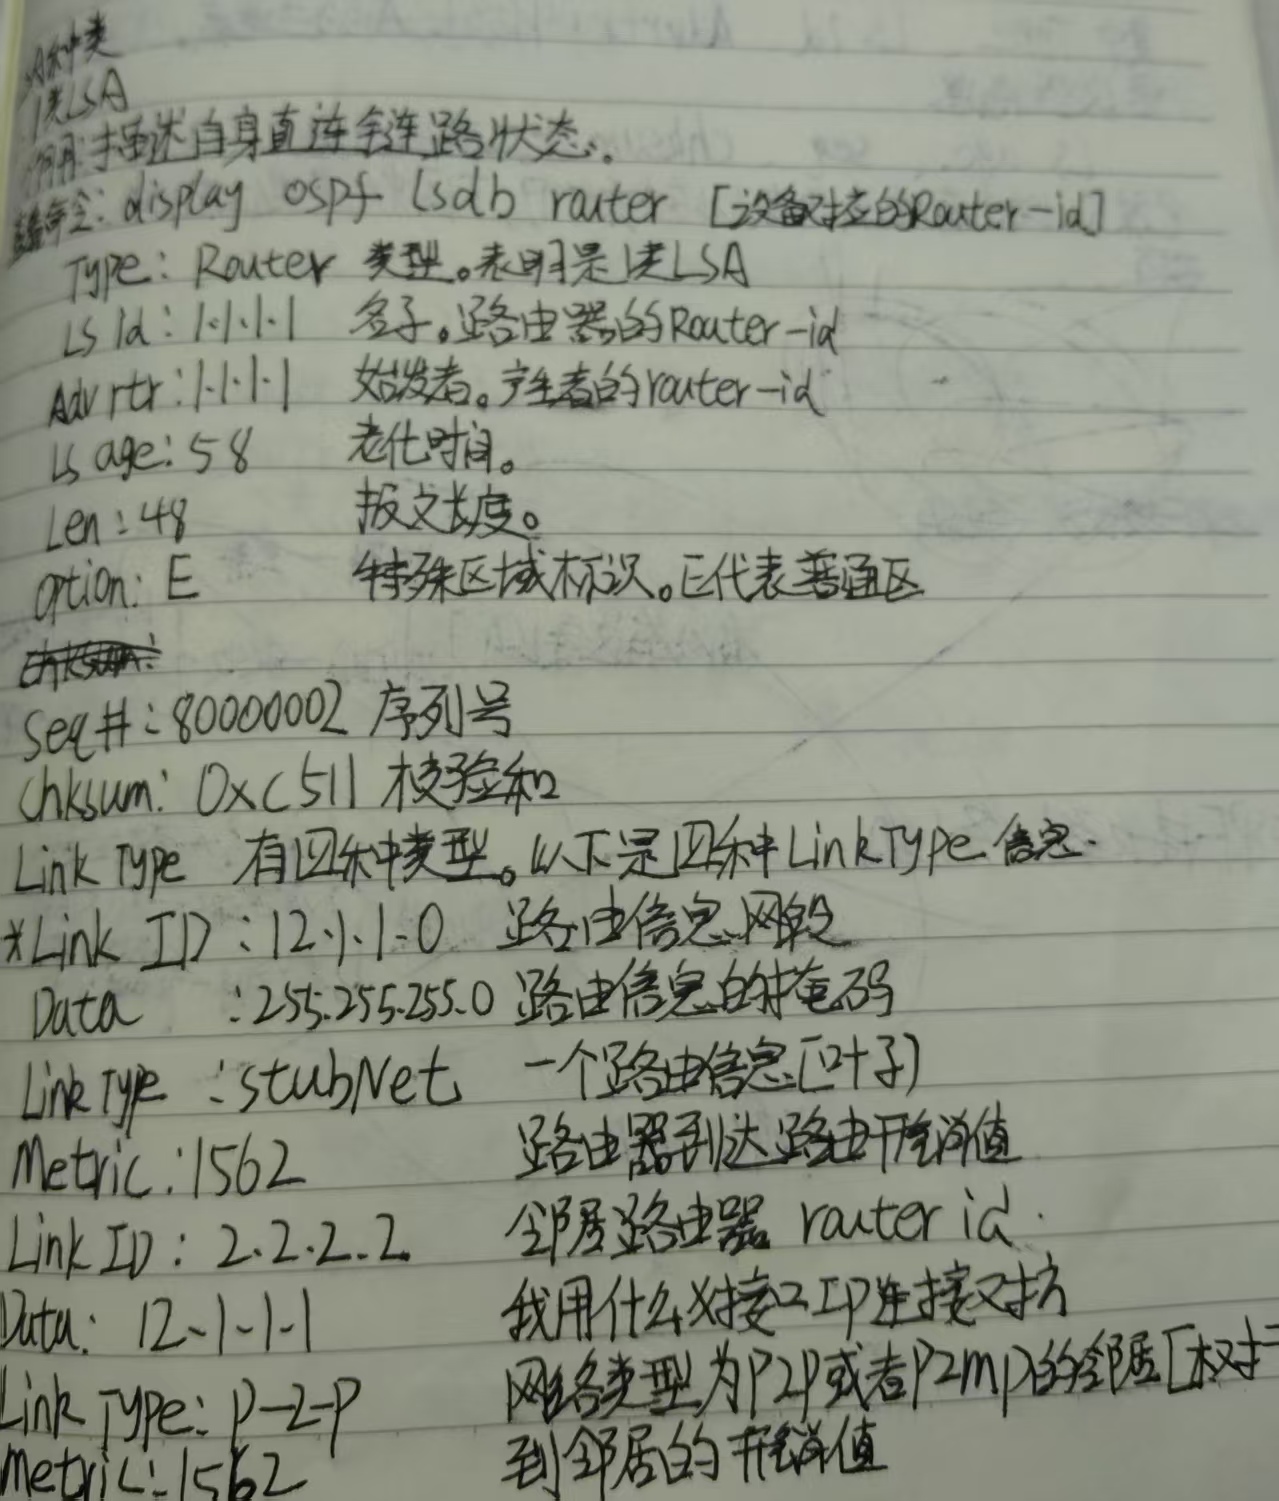 LSA种类
1类LSA
作用:描述自身直连链路状态.
查看命令: display ospf lsdb router [设备对应的Router-id]
Type: Router 类型。表明是1类LSA
Ls id: 1.1.1.1 名子。路由器的Router-id
Adv rtr: 1.1.1.1 始发者。产生者的router-id
Ls age: 58 老化时间。
Len: 48 报文长度。
option: E 特殊区域标识。E代表普通区
Seq#: 80000002 序列号
Chksum: 0xc511 校验和
Link Type 有四种类型。以下是四种LinkType 信息.
*Link ID: 12.1.1.0 路由信息网段
Data : 255.255.255.0 路由信息的掩码
Link Type : stubNet 一个路由信息[叶子]
Metric: 1562 路由器到达路由开销值
Link ID: 2.2.2.2 邻居路由器 router id.
Data: 12.1.1.1 我用什么接口IP连接对方
Link Type: P-2-P 网络类型为P2P或者P2MP的邻居[树干
Metric: 1562 到邻居的开销值